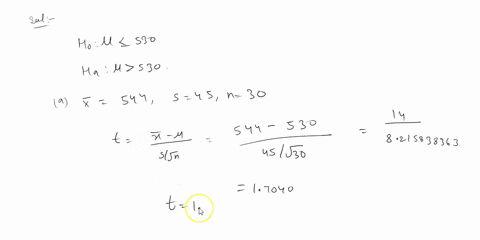 Sol:-
H₀: μ ≤ 530
Ha: μ > 530.
(a) x̄ = 544, s=45, n=30
t = (x̄ - μ)/(s/√n) = (544 - 530)/(45/√30) = 14/8.215838363
= 1.7040
t = 1.